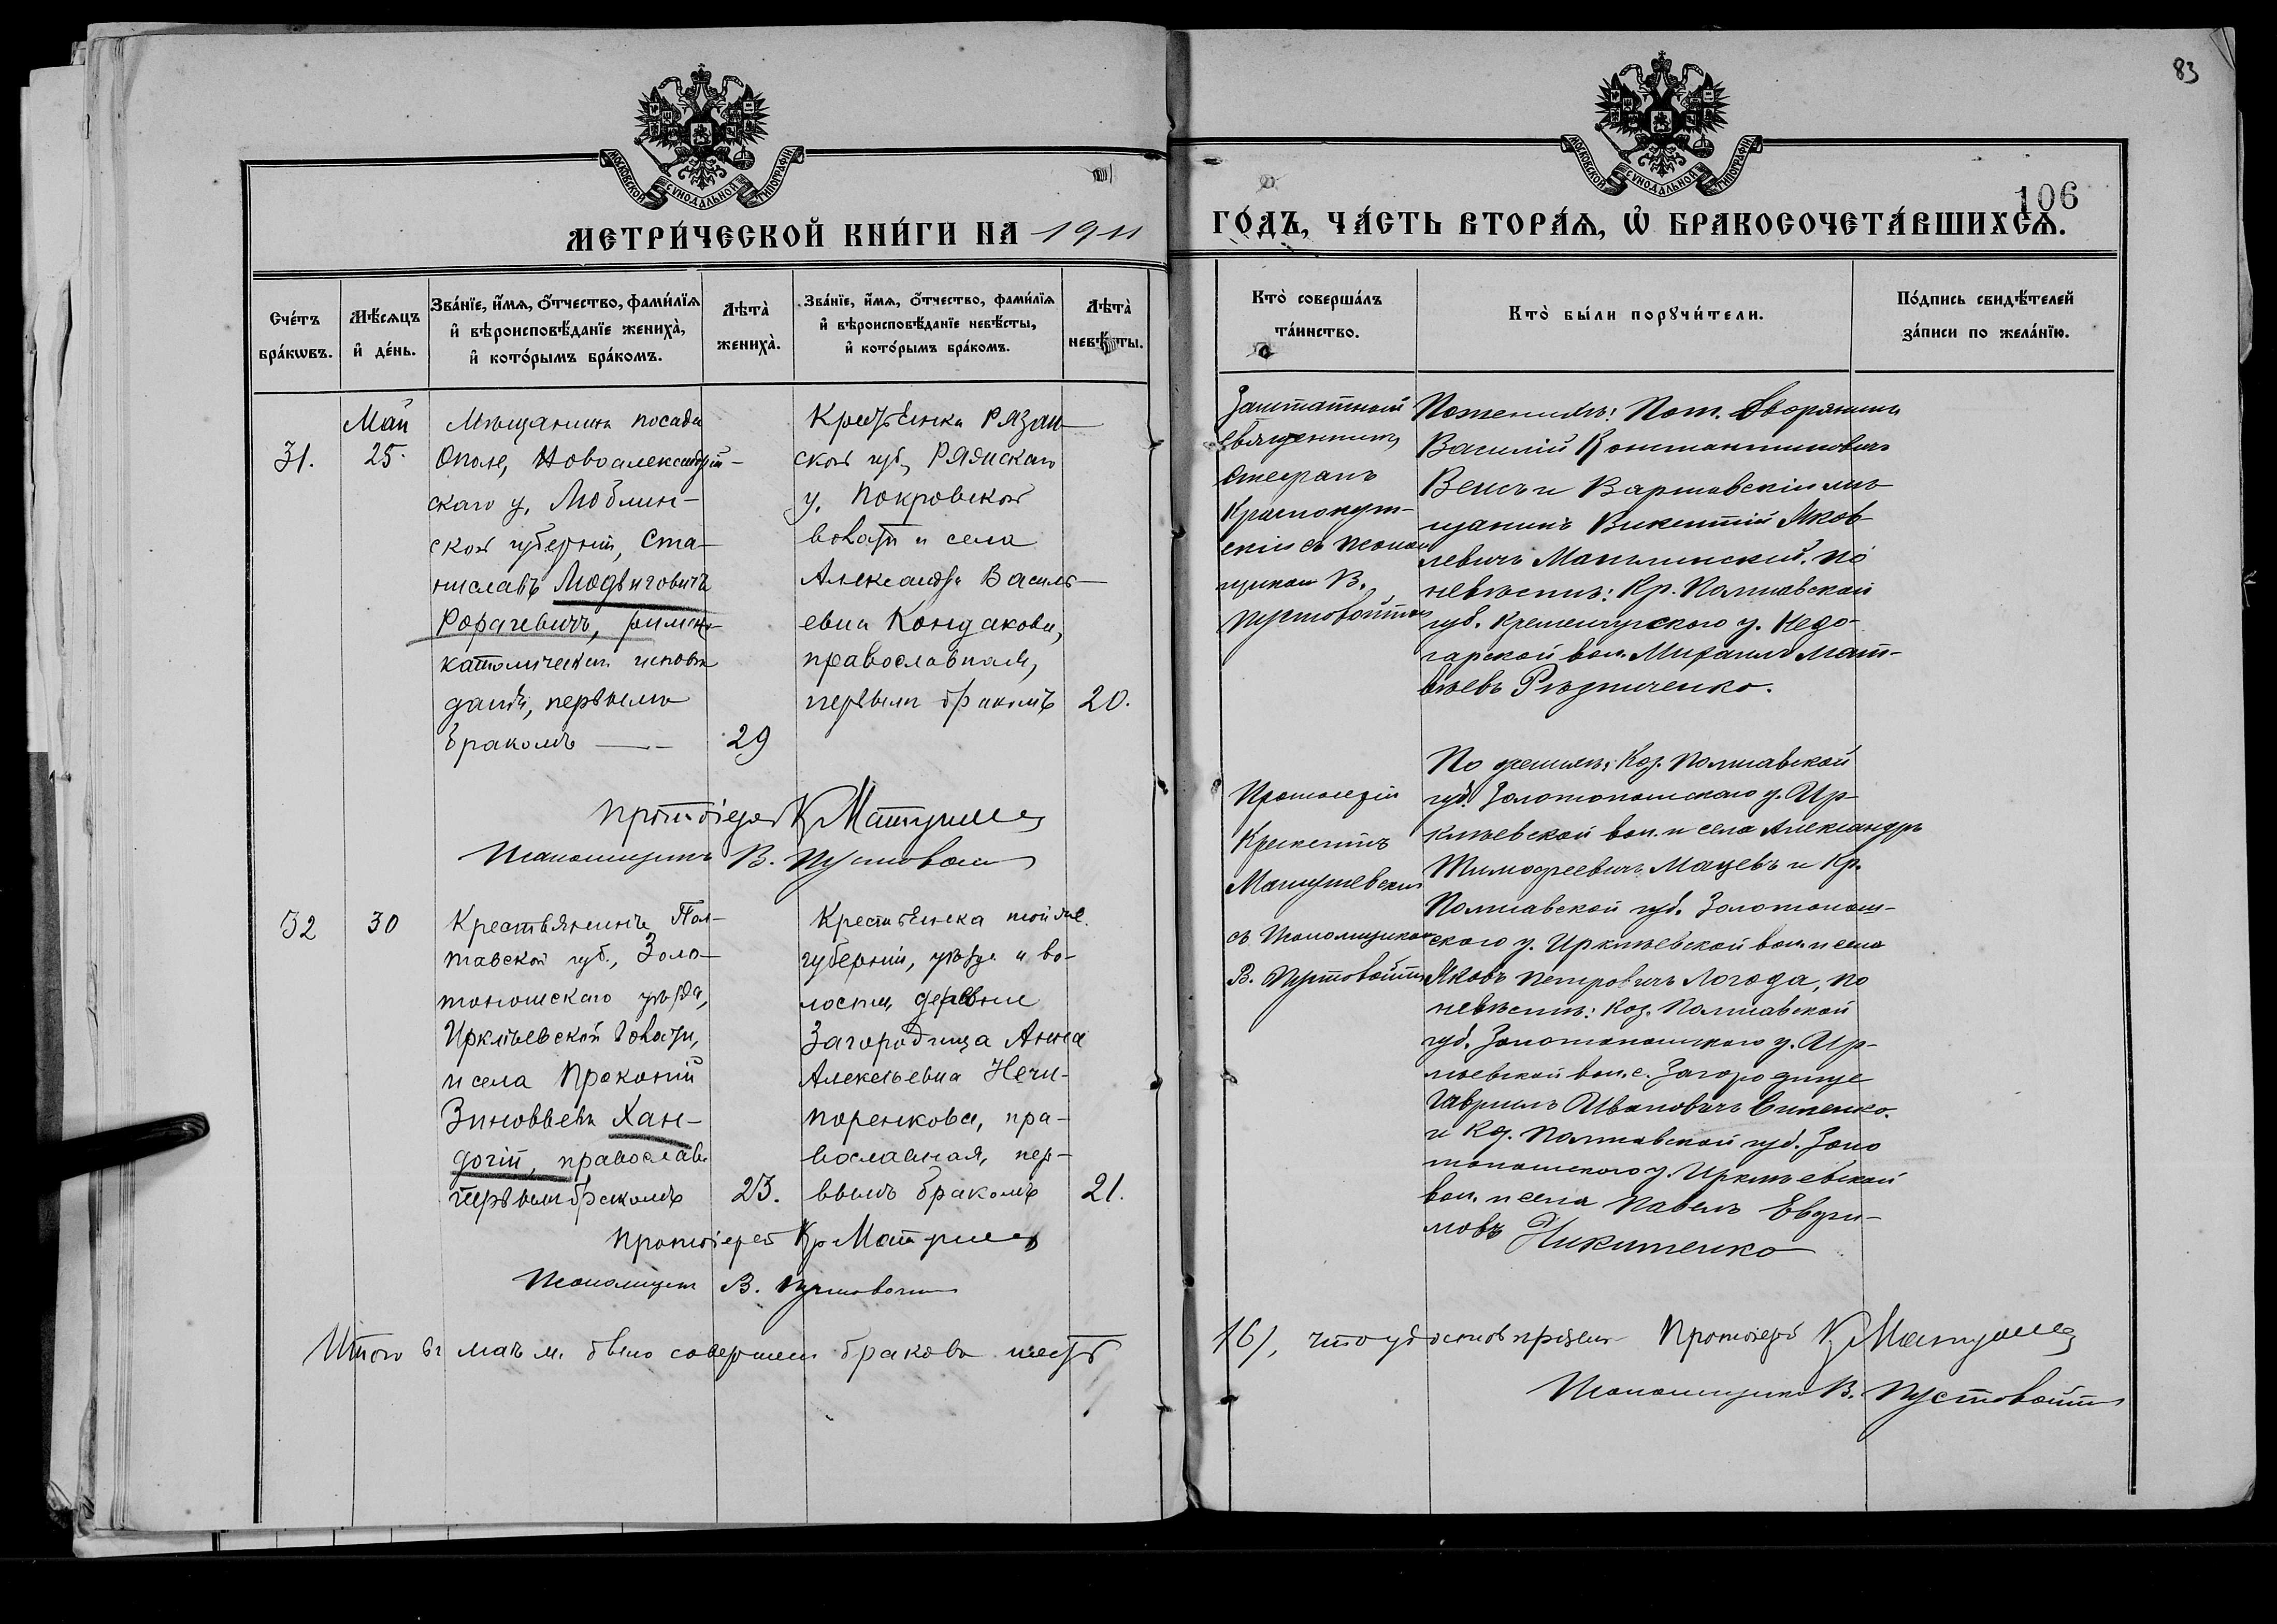 83
106
МОСКОВСКОЙ СѴНОДАЛЬНОЙ ТИПОГРАФІИ.
МОСКОВСКОЙ СѴНОДАЛЬНОЙ ТИПОГРАФІИ.
МЕТРИ́ЧЕСКОЙ КНИ́ГИ НА 1911
ГО́ДЪ, ЧА́СТЬ ВТОРА́Ѧ, Ѡ БРАКОСОЧЕТА́ВШИХСѦ.
Сче́тъ
бра́кѡвъ.
Мѣ́сѧцъ
и де́нь.
Зва́нїе, и́мѧ, о́тчество, фами́лїѧ
и вѣроисповѣ́данїе жениха̀,
и кото́рымъ бра́комъ.
Лѣта̀
жениха̀.
Зва́нїе, и́мѧ, о́тчество, фами́лїѧ
и вѣроисповѣ́данїе невѣ́сты,
и кото́рымъ бра́комъ.
Лѣта̀
невѣ́сты.
Кто̀ соверша́лъ
та́инство.
Кто̀ бы́ли порꙋчи́тели.
По́дпись свидѣ́телей
за́писи по жела́нїю.
31.
Май
25.
Мѣщанинъ посада
Ополе, Новоалександрій-
скаго у. Люблин-
ской губерніи, Ста-
ниславъ Людвиговичъ
Рафачевичъ, римск-
католическаго исповѣ
данія, первымъ
бракомъ
29
Крестьянка Рязан-
ской губ., Ряжскаго
у. Покровской
волости и села
Александра Василь-
евна Кондакова,
православная,
первымъ бракомъ
20.
Заштатный
священникъ
Стефанъ
Краснокут-
скій съ псалом
щикомъ В.
Пустовойтомъ
По женихѣ: Пот. дворянинъ
Василій Константиновичъ
и Варшавскій мѣ-
щанинъ Викентій Яков-
левичъ Малышинскій. по
невѣстѣ: Кр. Полтавской
губ. Кременчугскаго у. Недо-
гарской вол. Михаилъ Мат-
вѣевъ Рѣзниченко.
Протоіерей К Матушев
Псаломщикъ В. Пустовойт
32
30
Крестьянинъ Пол-
тавской губ., Золо-
тоношскаго уѣзда,
Ирклѣевской волости,
и села Прокопій
Зиновьевъ Хан-
догій, православ.
первымъ бракомъ
23.
Крестьянка той же
губерніи, уѣзда и во-
лости, деревни
Загородища Анна
Алексѣевна Нечи-
поренкова, пра-
вославная, пер-
вымъ бракомъ
21.
Протоіерей
Крискентъ
Матушевскій
съ Псаломщикомъ
В. Пустовойтомъ
По женихѣ: Коз. Полтавской
губ. Золотоношскаго у. Ир-
клѣевской вол. и села Александръ
Тимофеевичъ Мацевъ и Кр.
Полтавской губ. Золотонош-
скаго у. Ирклѣевской вол. и села
Яковъ Петровичъ Логода, по
невѣстѣ: Коз. Полтавской
губ. Золотоношскаго у. Ир-
лѣевской вол. с. Загородище
Гавриилъ Ивановичъ Сименко.
и Коз. Полтавской губ. Золо
тоношскаго у. Ирклѣевской
вол. и села Павелъ Евфи-
мовъ Никитенко
Протоіерей Кр Матушев
Псаломщикъ В. Пустовойт
Итого въ маѣ м. было совершено браковъ шесть
/6/, что удостовѣряемъ Протоіерей К Матушев
Псаломщикъ В. Пустовойтъ